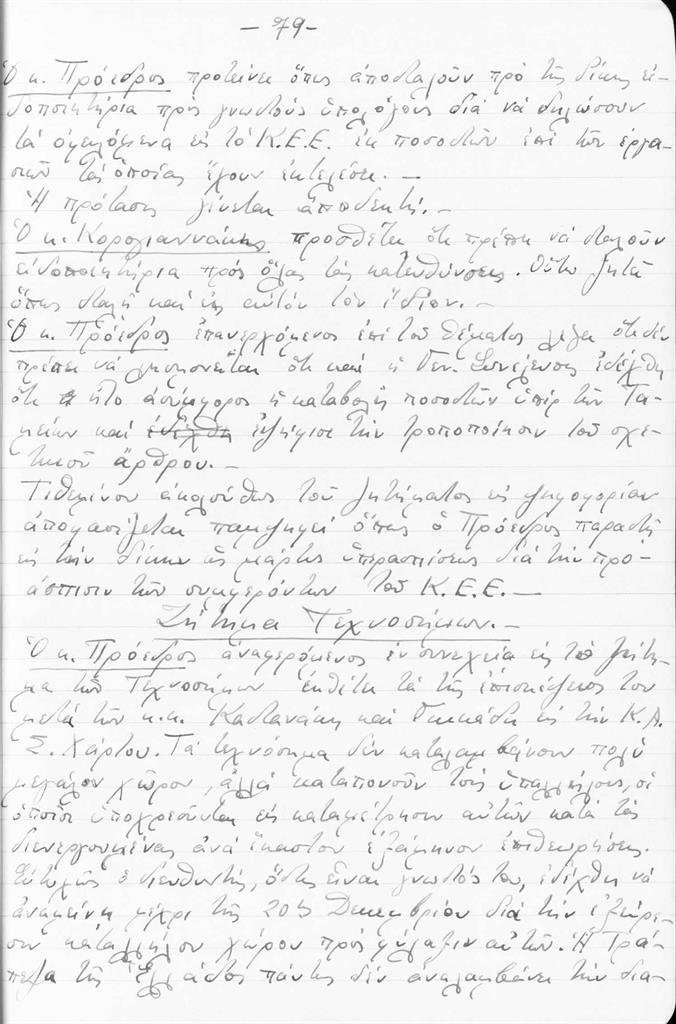 - 79 -
Ὁ κ. Πρόεδρος προτείνει ὅπως ἀποσταλοῦν πρὸ τῆς δίκης εἰ-
δοποιητήρια πρὸς γνωστοὺς ὑπολόγους διὰ νὰ δηλώσουν
τὰ ὀφειλόμενα εἰς τὸ Κ.Ε.Ε. ἐκ ποσοστῶν ἐπὶ τῶν ἐργα-
σιῶν τὰς ὁποίας ἔχουν ἐκτελέσει. -
Ἡ πρότασις γίνεται ἀποδεκτή. -
Ὁ κ. Κορογιαννάκης προσθέτει ὅτι πρέπει νὰ σταλοῦν
εἰδοποιητήρια πρὸς ὅλας τὰς κατευθύνσεις. Οὕτω ζητᾶ
ὅπως σταλῆ καὶ εἰς αὐτὸν τὸν ἴδιον. -
Ὁ κ. Πρόεδρος ἐπανερχόμενος ἐπὶ τοῦ θέματος λέγει ὅτι δὲν
πρέπει νὰ λησμονεῖται ὅτι καὶ ἡ Γεν. Συνέλευσις ἐδέχθη
ὅτι ἦτο ἀσύμφορος ἡ καταβολὴ ποσοστῶν ὑπὲρ τῶν Τα-
μείων καὶ ἐδέχθη ἐψήφισε τὴν τροποποίησιν τοῦ σχε-
τικοῦ ἄρθρου. -
Τιθεμένου ἀκολούθως τοῦ ζητήματος εἰς ψηφοφορίαν
ἀποφασίζεται παμψηφεὶ ὅπως ὁ Πρόεδρος παραστῆ
εἰς τὴν δίκην ὡς μάρτυς ὑπερασπίσεως διὰ τὴν προ-
άσπισιν τῶν συμφερόντων τοῦ Κ.Ε.Ε. -
Ζήτημα Τεχνοσήμων. -
Ὁ κ. Πρόεδρος ἀναφερόμενος ἐν συνεχείᾳ εἰς τὸ ζήτη-
μα τῶν Τεχνοσήμων ἐκθέτει τὰ τῆς ἐπισκέψεώς του
μετὰ τῶν κ.κ. Καστανάκη καὶ εἰς τὴν Κ.Α.
Σ. Χάρτου. Τὰ τεχνόσημα δὲν καταλαμβάνουν πολὺ
μεγάλον χῶρον, ἀλλὰ καταπονοῦν τοὺς ὑπαλλήλους, οἱ
ὁποῖοι ὑποχρεοῦνται εἰς καταμέτρησιν αὐτῶν κατὰ τὰς
διενεργουμένας ἀνὰ ἕκαστον ἑξάμηνον ἐπιθεωρήσεις.
Εὐτυχῶς ὁ διευθυντής, ὅστις εἶναι γνωστός του, ἐδέχθη νὰ
ἀναμείνη μέχρι τῆς 20ῆς Δεκεμβρίου διὰ τὴν ἐξεύρε-
σιν καταλλήλου χώρου πρὸς φύλαξιν αὐτῶν. Ἡ Τρά-
πεζα τῆς Ἑλλάδος πάντως δὲν ἀναλαμβάνει τὴν δια-